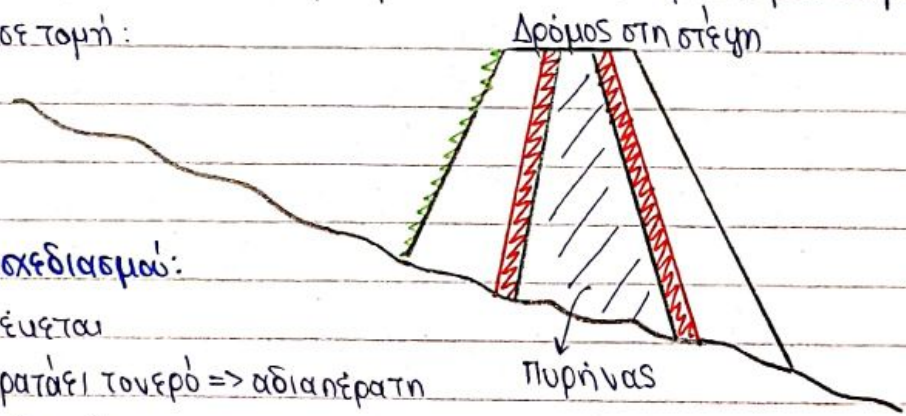 σε τομή:
Δρόμος στη στέψη
σχεδιασμού:
έκεται
ρατάει το νερό => αδιαπέρατη
Πυρήνας